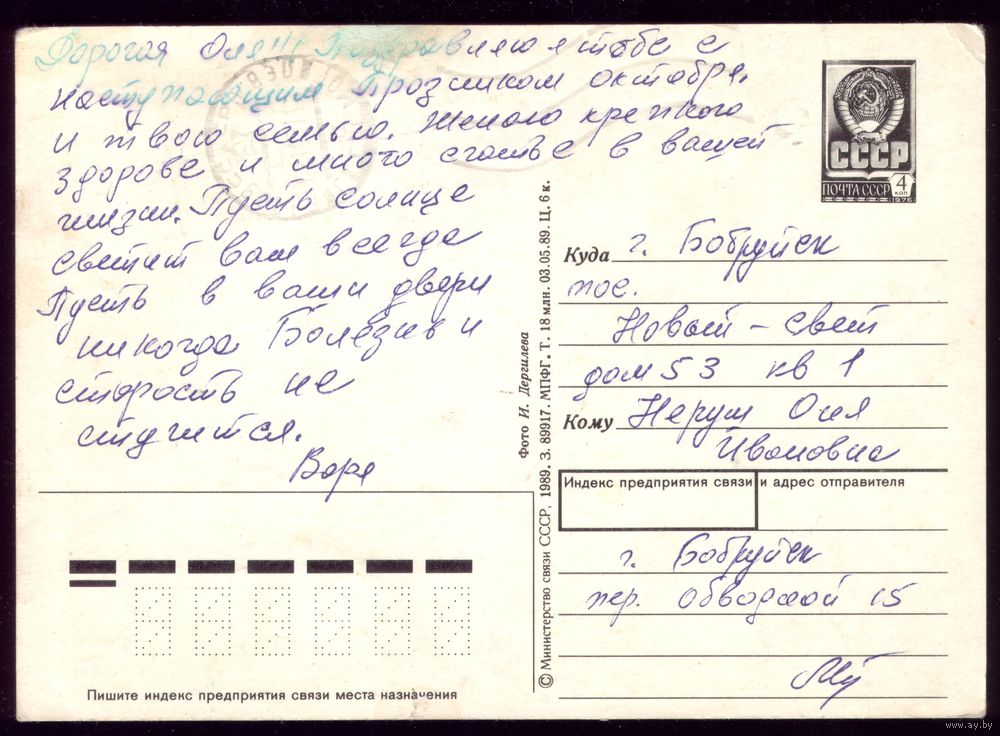 Дорогая Оля!!! Поздравляю я тебе с
наступающим Празником октября.
и твою семью. Желаю крепкого
здорове и много счастье в вашей
жизни. Пусть солнце
светит вам всегда
Пусть в ваши двери
никогда Болезнь и
старость не
стучится.
Варя
СССР
ПОЧТА СССР 4 КОП
1976
Куда г. Бобруйск
пос.
Новый - свет
дом 53 кв 1
Кому Неруш Оля
Ивановна
Индекс предприятия связи и адрес отправителя
г. Бобруйск
пер. Обводной 15
Фото И. Дергилева
© Министерство связи СССР, 1989. З. 89917. МПФГ. Т. 18 млн. 03.05.89. Ц. 6 к.
Пишите индекс предприятия связи места назначения
www.ay.by